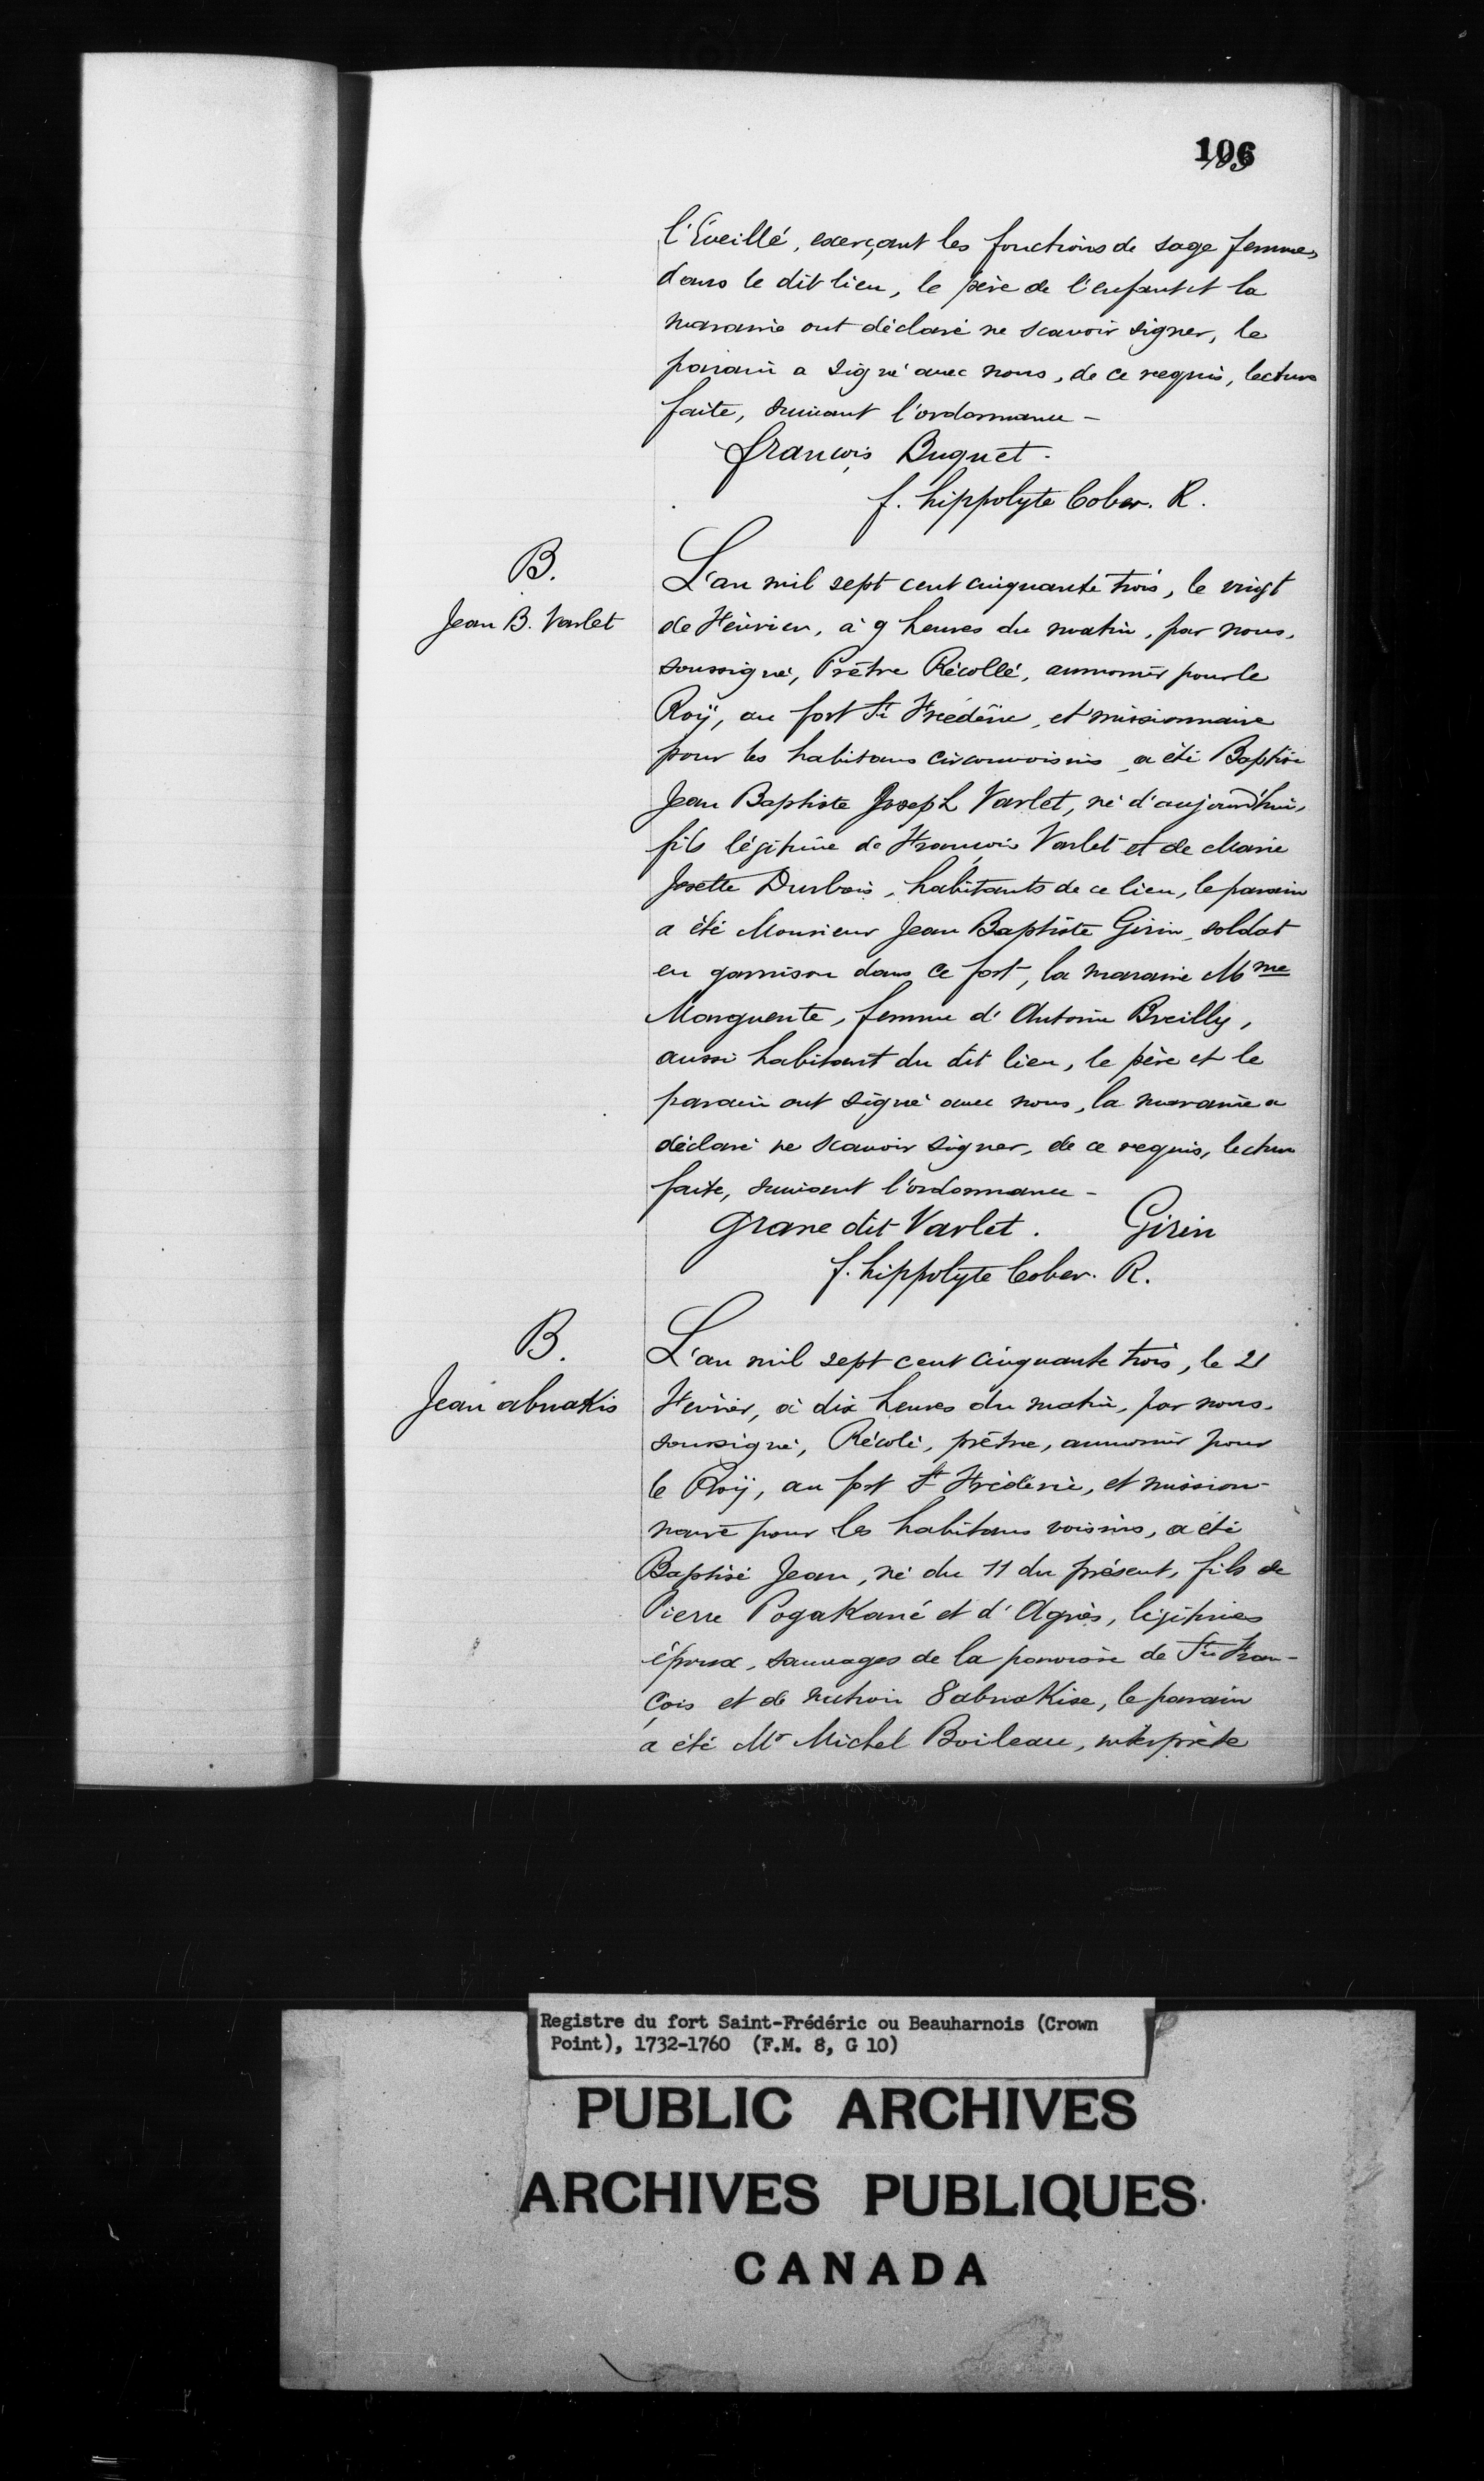 106
l'Eveillé, exerçant les fonctions de sage femme,
dans le dit lieu, le père de l'enfant et la
maraine ont déclaré ne scavoir signer, le
parain a signé avec nous, de ce requis, lecture
faite, suivant l'ordonnance -
françois Buquet.
f. hippolyte Cober. R.
B.
Jean B. Varlet
L'an mil sept cent cinquante trois, le vingt
de Février, à 9 heures du matin, par nous,
soussigné, Prêtre Récollé, aumonier pour le
Roÿ, au fort St Frédéric, et missionnaire
pour les habitans circonvoisins, a été Baptisé
Jean Baptiste Joseph Varlet, né d'aujourd'hui,
fils légitime de François Varlet et de Marie
Josette Durbois, habitants de ce lieu, le parain
a été Monsieur Jean Baptiste Girin, soldat
en garnison dans ce fort, la maraine Mme
Marguerite, femme d'Antoine Breilly,
aussi habitant du dit lieu, le père et le
parain ont signé avec nous, la maraine a
déclaré ne scavoir signer, de ce requis, lecture
faite, suivant l'ordonnance -
Grane dit Varlet. Girin
f. hippolyte Cober. R.
B.
Jean abnakis
L'an mil sept cent cinquante trois, le 21
Février, à dix heures du matin, par nous,
soussigné, Récolé, prêtre, aumonier pour
le Roÿ, au fort St Frédéric, et mission-
naire pour les habitans voisins, a été
Baptisé Jean, né du 11 du présent, fils de
Pierre Pogakané et d'Agnès, légitimes
époux, sauvages de la paroisse de St Fran-
çois et de nation 8abnakise, le parain
a été Mr Michel Boileau, interprète
Registre du fort Saint-Frédéric ou Beauharnois (Crown
Point), 1732-1760 (F.M. 8, G 10)
PUBLIC ARCHIVES
ARCHIVES PUBLIQUES
CANADA